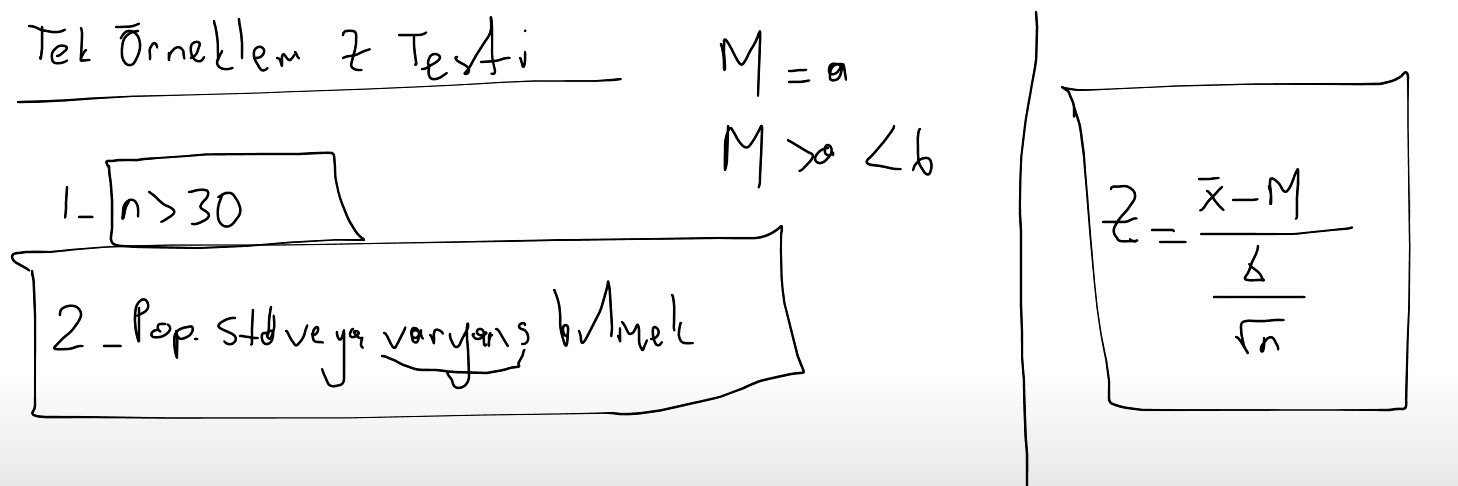 Tek Örneklem Z Testi
M = a
M > a < b
1- n > 30
2 - Pop. std veya varyans bilmek
Z = x̄ - M / σ / √n